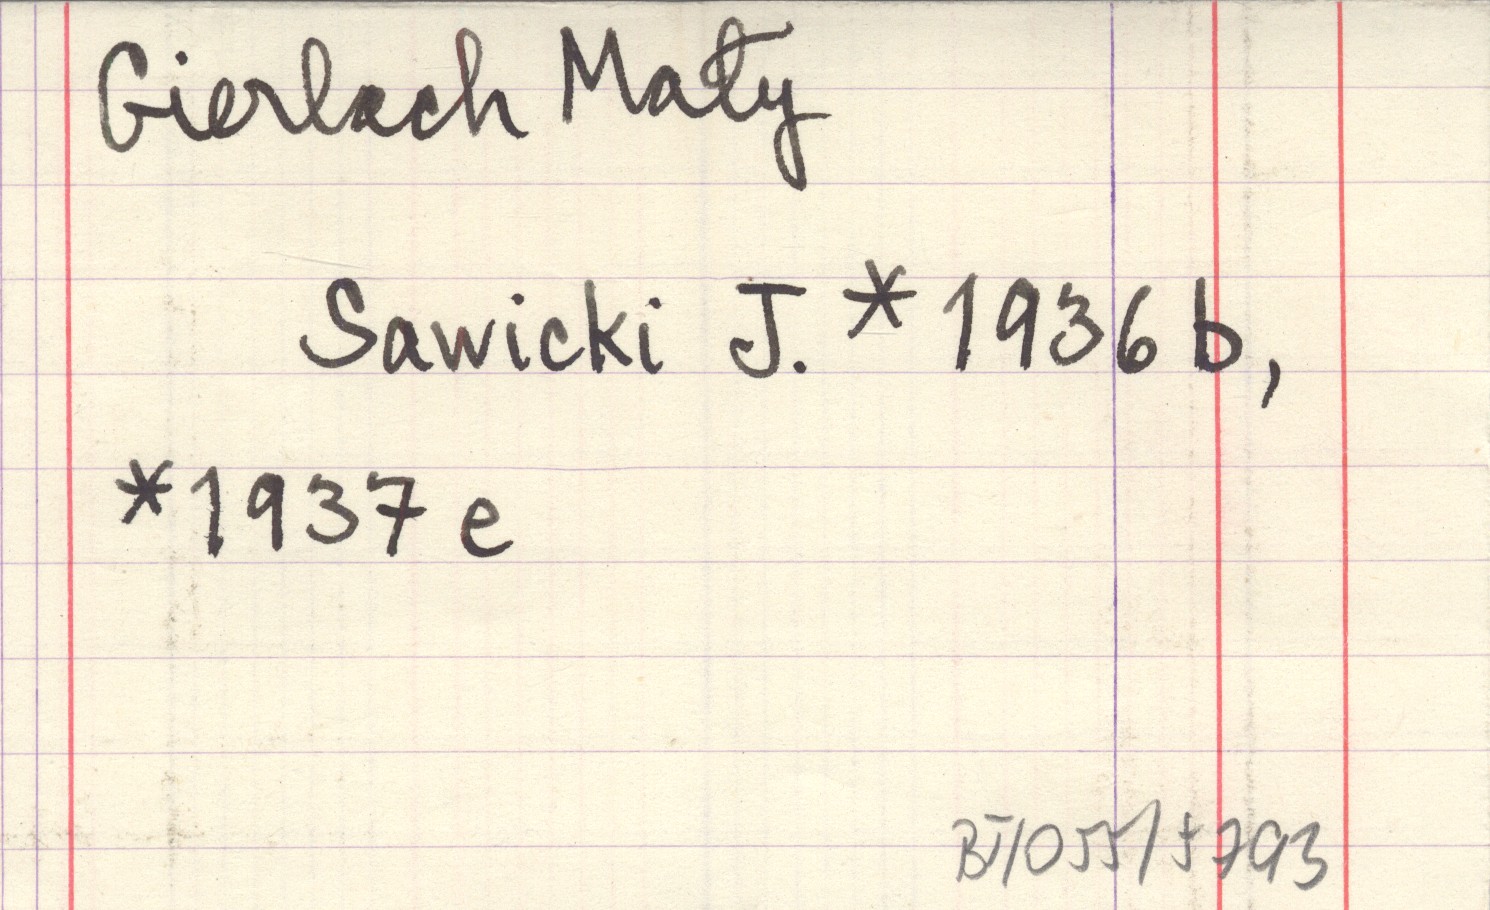 Gierlach Mały
Sawicki J. *1936 b,
*1937 e
BT/055/5793